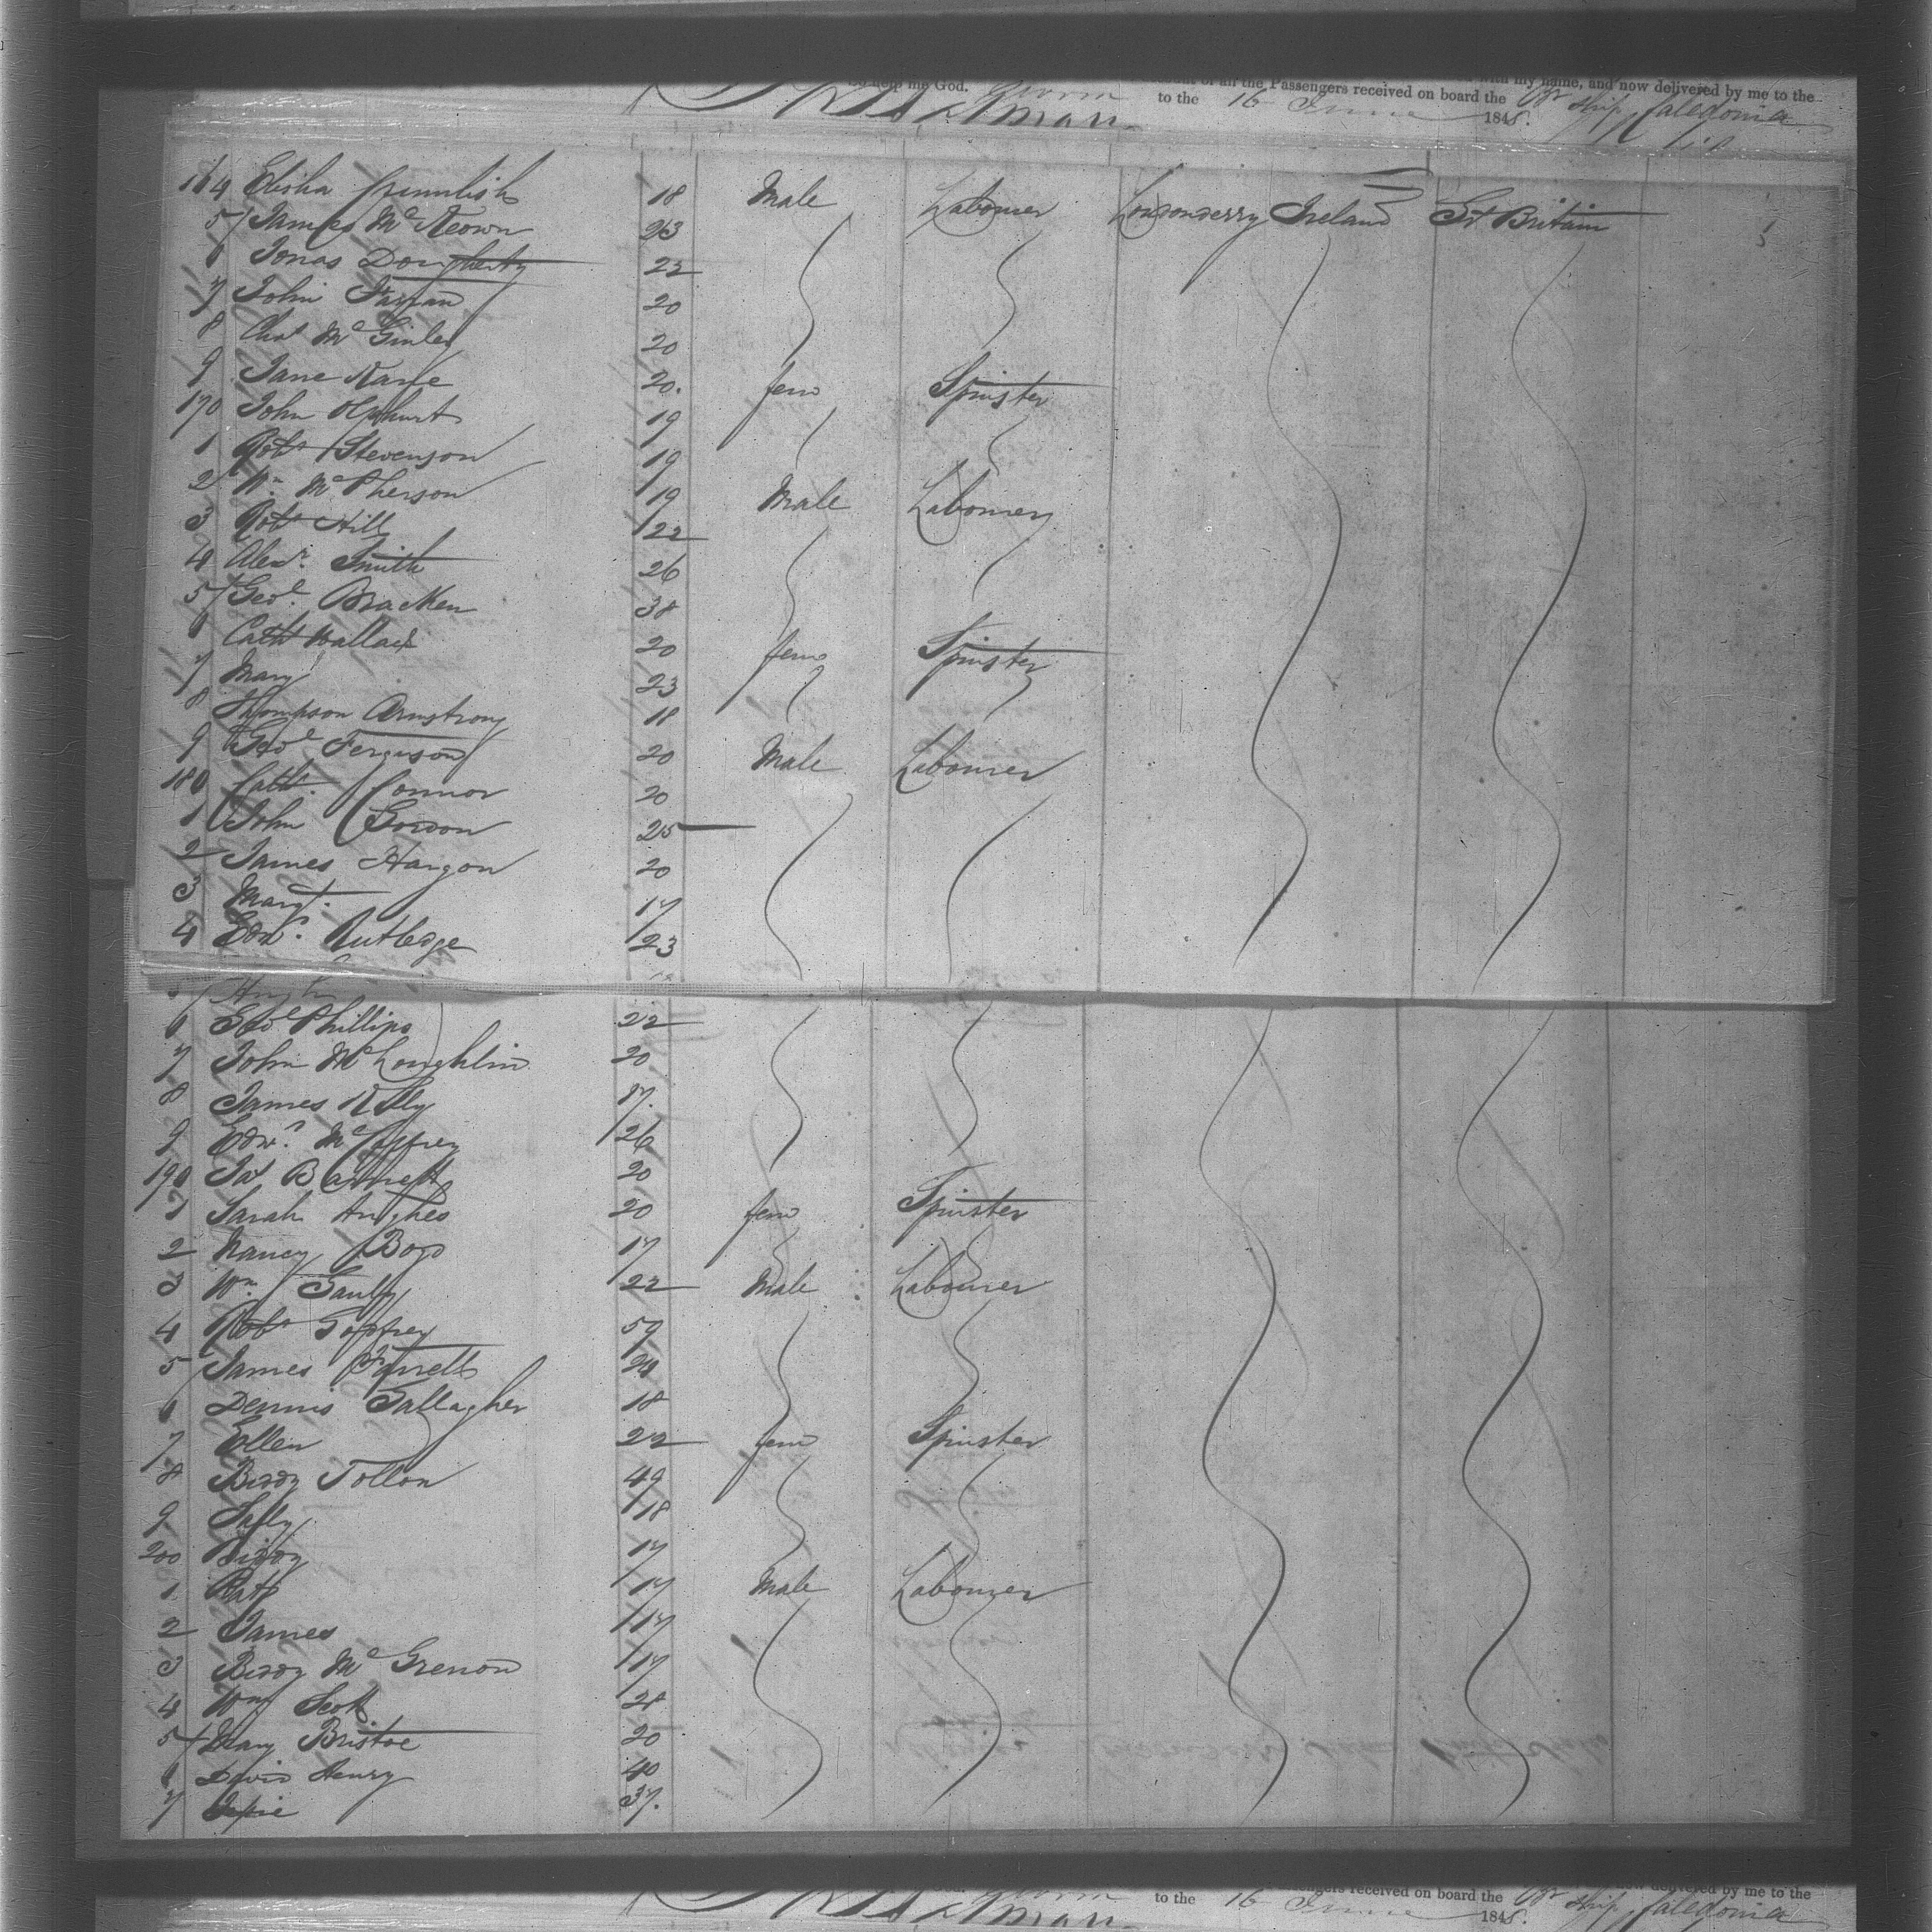 So help me God.
of all the Passengers received on board the with my name, and now delivered by me to the
to the 16 June 1848. Ship Caledonia
164 Elisha 18 Male Labourer Londonderry Ireland Gt Britain
5 James McKeown 23
6 Jonas Dougherty 22
7 John Farran 20
8 Chas McGinley 20
9 Jane Kane 20. fem Spinster
170 John 19
1 Robt Stevenson 19
2 Wm McPherson 19 Male Labourer
3 Robt Hill 22
4 Alexr. Smith 26
5 Geoe. Bracken 38
6 Cath Wallace 20 fem Spinster
7 Mary 23
8 Thompson Armstrong 18
9 Geoe Ferguson 20 Male Labourer
180 Cath. Connor 20
1 John Gordon 25
2 James Hargon 20
3 Margt. 17
4 Edwd. Rutledge 23
5
6 Geoe Phillips 22
7 John McLoughlin 20
8 James Kelly 17.
9 Edwd. McCaffrey 26
190 Jas Barnett 20
1 Sarah Hughes 20 fem Spinster
2 Nancy Boyd 17
3 Wm. Gault 22 Male Labourer
4 Robt Godfrey 59
5 James Farrell
6 Dennis Gallagher 18
7 Ellen 22 fem Spinster
8 Biddy Tollon 49
9 Sally 18
200 Biddy 17
1 Patk 17 Male Labourer
2 James 17
3 Biddy McGrenon 17
4 Wm Scott 28
5 Mary Bristoe 20
6 David Henry 40
7 37.
God.
received on board the now delivered by me to the
to the 16 June 1848. Ship Caledonia